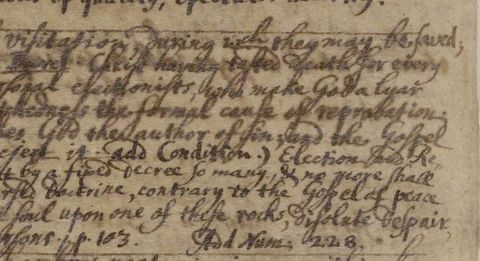 visitation, during wch they may be saved,
Christ having tasted Death for every
sonal electionists, who make God a lyar
the formal cause of reprobation:
God the author of sin, and the Gospel
it. add Condition.) Election and Re-
by a fixed decree so many, & no more shall
doctrine, contrary to the Gospel of peace
soul upon one of these rocks, Disolate Despair,
p. 103. Add Num: 228.